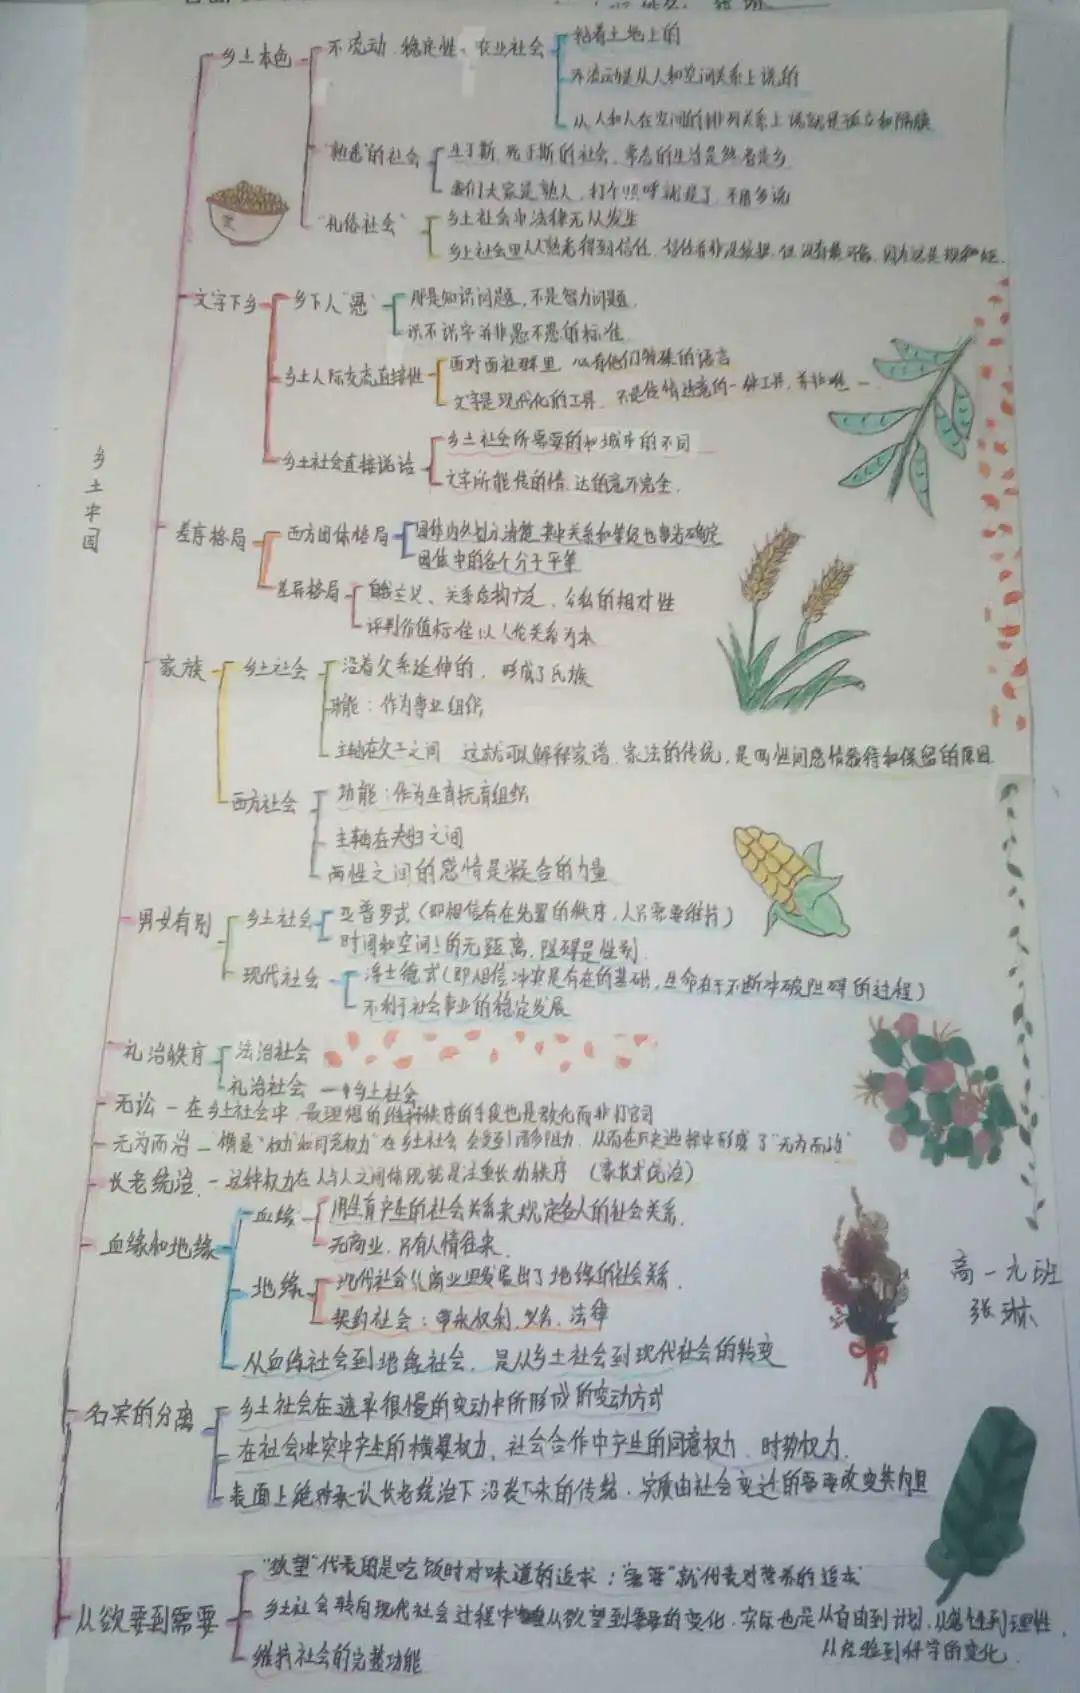 乡土中国
乡土本色
不流动、稳定性、农业社会
粘着土地上的
不流动是从人和空间关系上说的
从人和人在空间的排列关系上说就是孤立和隔膜
"熟悉"的社会
生于斯、死于斯的社会，常态的生活是终老是乡
我们大家是熟人，打个照呼就是了，不用多说
"礼俗社会"
乡土社会中法律无从发生
乡土社会里从熟悉得到信任
文字下乡
乡下人"愚"
那是知识问题，不是智力问题
识不识字并非愚不愚的标准
乡土人际交流直接性
面对面社群里，必有他们特殊的语言
文字是现代化的工具
乡土社会直接说话
乡土社会所需要的和城市的不同
文字所能传的情、达的意不完全
差序格局
西方团体格局
团体中的各个分子平等
差异格局
自我主义、关系结构广泛、公私的相对性
评判价值标准以人伦关系为本
家族
乡土社会
沿着父系延伸的，形成了氏族
功能：作为事业组织
主轴在父子之间 这就可以解释家谱、家法的传统，是两性间感情
西方社会
功能：作为生育抚育组织
主轴在夫妇之间
两性之间的感情是凝合的力量
男女有别
乡土社会
亚普罗式（即相信存在先置的秩序，人只需要维持）
时间和空间上的无距离，阻碍是性别
现代社会
浮士德式（即相信冲突是存在的基础，生命在于不断冲破阻碍的过程）
不利于社会事业的稳定发展
礼治秩序
法治社会
礼治社会 → 乡土社会
无讼 — 在乡土社会中，最理想的维持秩序的手段也是教化而非打官司
无为而治 — 横暴"权力"和同意权力"在乡土社会会受到诸多阻力，从而在历史选择中形成了"无为而治"
长老统治 — 这种权力在人与人之间体现就是注重长幼秩序（家长式统治）
血缘和地缘
血缘
用生育产生的社会关系来规定各人的社会关系
无商业，只有人情往来
地缘
现代社会从商业里发展出了地缘的社会关系
契约社会：带来权利、义务、法律
从血缘社会到地缘社会，是从乡土社会到现代社会的转变
高一九班
张琳
名实的分离
乡土社会在速率很慢的变动中所形成的变动方式
在社会冲突中产生的横暴权力、社会合作中产生的同意权力、时势权力
表面上绝对承认长老统治下沿袭下来的传统，实质由社会变迁的需要改变其内且
从欲要到需要
"欲望"代表的是吃饭时对味道的追求；"需要"就代表对营养的追求
乡土社会转向现代社会过程中
从欲望到需要的变化，实际也是从自由到计划，从感性到理性，
从经验到科学的变化
维持社会的完整功能